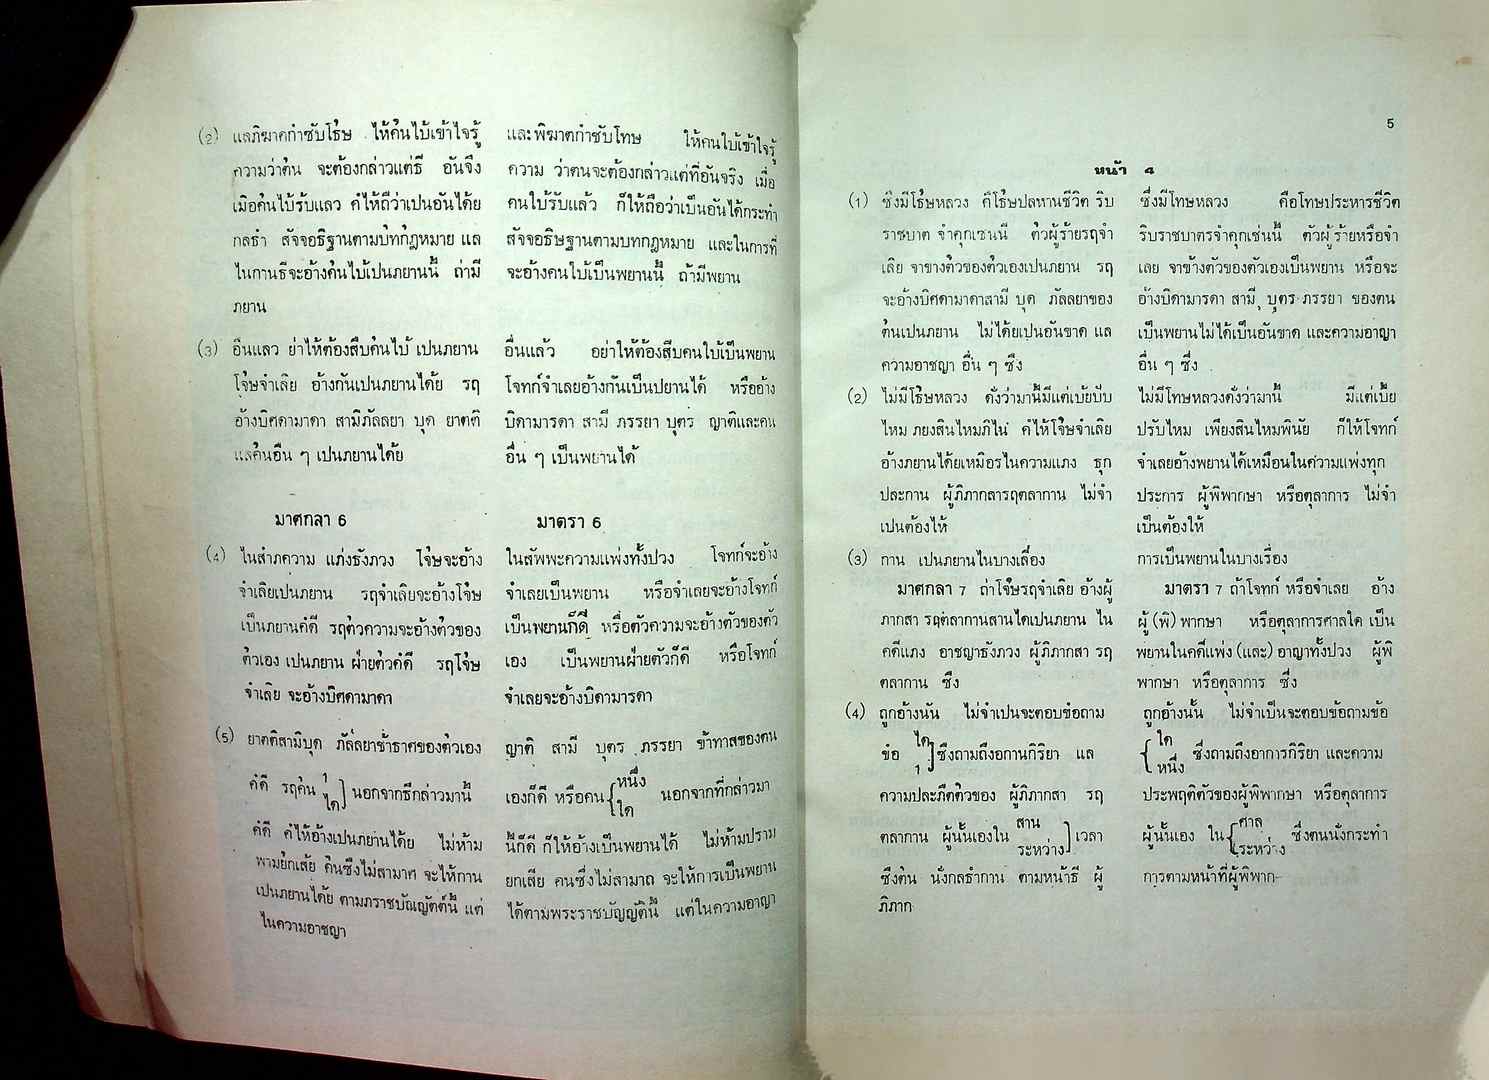 (2) แลภิฆาคกำชับโธ้ษ ให้ค้นไบ้เข้าไจรู้
ความว่าต้น จะต้องกล่าวแต่ธี อันจึง
เมือค้นไบ้รับแลว คํให้ถืว่าเปนอันได้ย
กลธำ สัจจอธิฐานตามบ้ทกํฎหมาย แล
ไนกานธีจะอ้างค้นไบ้เปนภยานนี้ ถ่ามี
ภยาน
(3) อืนแลว ย่าไห้ต้องสืบค้นไบ้ เปนภยาน
โจ้ษจำเลิย อ้างกันเปนภยานได้ย รฤ
อ้างบิศดามาดา สามิภัลลยา บุด ยาตติ
แลค้นอืน ๆ เปนภยานได้ย
มาศกลา 6
(4) ไนสำภความ แภ่งธังภวง โจ้ษจะอ้าง
จำเลิยเปนภยาน รฤจำเลิยจะอ้างโจ้ษ
เป็นภยานคํดี รฤตัวความจะอ้างตัวของ
ตัวเอง เปนภยาน ฝ่ายตัวคํดี รฤโจ้ษ
จำเลิย จะอ้างบิศดามาดา
(5) ยาตติสามิบุด ภัลลยาข้ำธาศของตัวเอง
คํดี รฤค้น ๑ ได] นอกจากธีกล่าวมานี้
คํดี คํไห้อ้างเปนภยานได้ย ไม่ห้าม
พามย้กเส้ย ค้นซึงไม่สามาศ จะไห้กาน
เปนภยานได้ย ตามภราชบัณญัตต์นี้ แต่
ไนความอาชญา
และพิฆาตกำชับโทษ ให้คนใบ้เข้าใจรู้
ความ ว่าตนจะต้องกล่าวแต่ที่อันจริง เมื่อ
คนใบ้รับแล้ว ก็ให้ถือว่าเป็นอันได้กระทำ
สัจจอธิษฐานตามบทกฎหมาย และในการที่
จะอ้างคนใบ้เป็นพยานนี้ ถ้ามีพยาน
อื่นแล้ว อย่าให้ต้องสืบคนใบ้เป็นพยาน
โจทก์จำเลยอ้างกันเป็นปยานได้ หรืออ้าง
บิดามารดา สามี ภรรยา บุตร ญาติและคน
อื่น ๆ เป็นพยานได้
มาตรา 6
ในสัพพะความแพ่งทั้งปวง โจทก์จะอ้าง
จำเลยเป็นพยาน หรือจำเลยจะอ้างโจทก์
เป็นพยานก็ดี หรือตัวความจะอ้างตัวของตัว
เอง เป็นพยานฝ่ายตัวก็ดี หรือโจทก์
จำเลยจะอ้างบิดามารดา
ญาติ สามี บุตร ภรรยา ข้าทาสของตน
เองก็ดี หรือคน{หนึ่ง ใด นอกจากที่กล่าวมา
นี้ก็ดี ก็ให้อ้างเป็นพยานได้ ไม่ห้ามปราม
ยกเสีย คนซึ่งไม่สามาถ จะให้การเป็นพยาน
ได้ตามพระราชบัญญัตินี้ แต่ในความอาญา
5
หน้า 4
(1) ซึงมีโธ้ษหลวง คืโธ้ษปลหานชีวิต ริบ
ราชบาต จำคุกเชนนี ตัวผู้ร้ายรฤจำ
เลิย จาขางตัวของตัวเองเปนภยาน รฤ
จะอ้างบิศดามาดาสามี บุด ภัลลยาของ
ต้นเปนภยาน ไม่ได้ยเปนอันขาด แล
ความอาชญา อื่น ๆ ซึง
(2) ไม่มีโธ้ษหลวง ดังว่ามานี้มีแต่เบ้ยปับ
ไหม ภยงสินไหมภิไน่ คํไห้โจ้ษจำเลิย
อ้างภยานได้ยเหมือรไนความแภง ธุก
ปละกาน ผู้ภิภากสารฤตลากาน ไม่จำ
เปนต้องไห้
(3) กาน เปนภยานไนบางเลื่อง
มาศกลา 7 ถ่าโจ้ษรฤจำเลิย อ้างผู้
ภากสา รฤต่ลากานสานไดเปนภยาน ใน
คดีแภง อาชญาธังภวง ผู้ภิภากสา รฤ
ตลากาน ซึง
(4) ถูกอ้างนัน ไม่จำเปนจะตอบข้อถาม
ข่อ ได ๑] ซึงถามถึงอกานกิริยา แล
ความปละภืตตัวของ ผู้ภิภากสา รฤ
ตลากาน ผู้นั้นเองใน สาน ระหว่าง] เวลา
ซึงต้น นั่งกลธำกาน ตามหน้าธี ผู้
ภิภาก
ซึ่งมีโทษหลวง คือโทษประหารชีวิต
ริบราชบาตรจำคุกเช่นนี้ ตัวผู้ร้ายหรือจำ
เลย จาข้างตัวของตัวเองเป็นพยาน หรือจะ
อ้างบิดามารดา สามี บุตร ภรรยา ของตน
เป็นพยานไม่ได้เป็นอันขาด และความอาญา
อื่น ๆ ซึ่ง
ไม่มีโทษหลวงดั่งว่ามานี้ มีแต่เบี้ย
ปรับไหม เพียงสินไหมพินัย ก็ให้โจทก์
จำเลยอ้างพยานได้เหมือนในความแพ่งทุก
ประการ ผู้พิพากษา หรือตุลาการ ไม่จำ
เป็นต้องให้
การเป็นพยานในบางเรื่อง
มาตรา 7 ถ้าโจทก์ หรือจำเลย อ้าง
ผู้ (พิ) พากษา หรือตุลาการศาลใด เป็น
พยานในคดีแพ่ง (และ) อาญาทั้งปวง ผู้พิ
พากษา หรือตุลาการ ซึ่ง
ถูกอ้างนั้น ไม่จำเป็นจะตอบข้อถามข้อ
{ใด หนึ่ง ซึ่งถามถึงอาการกิริยา และความ
ประพฤติตัวของผู้พิพากษา หรือตุลาการ
ผู้นั้นเอง ใน{ศาล ระหว่าง ซึ่งตนนั่งกระทำ
การตามหน้าที่ผู้พิพาก-